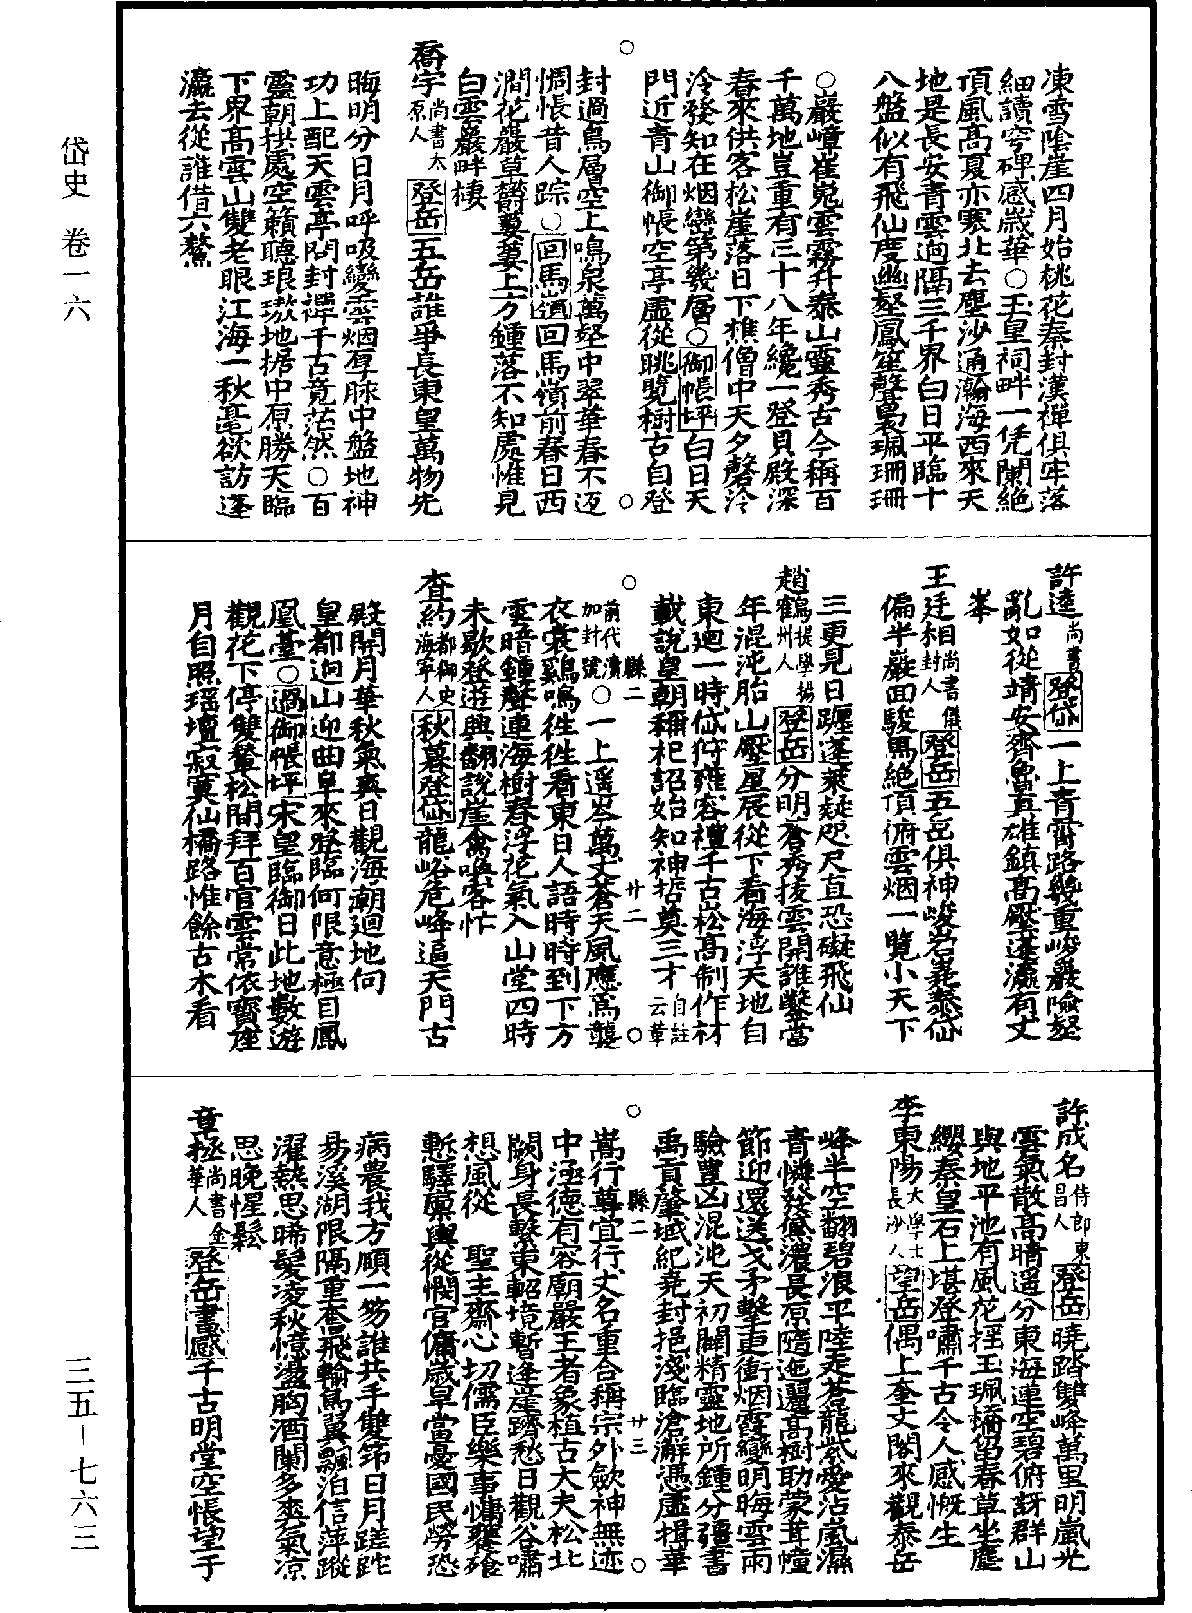 岱史 卷一六
三五－七六三
凍雪陰崖四月始桃花秦封漢禪俱牢落
細讀穹碑感歲華○玉皇祠畔一凭闌絕
頂風高夏亦寒北去塵沙通瀚海西來天
地是長安青雲迥隔三千界白日平臨十
八盤似有飛仙度幽壑鳳笙聲裏珮珊珊
○巖嶂崔嵬雲霧升泰山靈秀古今稱百
千萬地豈重有三十八年纔一登貝殿深
春來供客松崖落日下樵僧中天夕磬泠
泠發知在烟巒第幾層○御帳坪白日天
門近青山御帳空亭虛從眺覽樹古自登
封過鳥層空上鳴泉萬壑中翠華春不返
惆悵昔人踪○回馬嶺回馬嶺前春日西
澗花巖草鬱萋萋上方鍾落不知處惟見
白雲巖畔棲
喬宇尚書太原人登岳五岳誰爭長東皇萬物先
晦明分日月呼吸變雲烟厚脉中盤地神
功上配天雲亭問封禪千古竟茫然○百
靈朝拱處空籟聽琅璈地據中原勝天臨
下界高雲山雙老眼江海一秋毫欲訪蓬
瀛去從誰借六鰲
許逵尚書登岱一上青霄路幾重峻巖險壑
亂如從靖安齊魯真雄鎮高壓蓬瀛有丈
峯
王廷相尚書儀封人登岳五岳俱神峻岩嶤泰岱
偏半巖回駿馬絕頂俯雲烟一覽小天下
三更見日躔蓬萊疑咫尺直恐礙飛仙
趙鶴提學揚州人登岳分明蒼秀拔雲開誰鑿當
年混沌胎山壓星辰從下看海浮天地自
東廻一時岱狩雍容禮千古崧高制作材
載說皇朝稱祀詔始知神括奠三才自註云革
前代瀆加封號○一上遥岑萬丈蒼天風應爲襲
衣裳鷄鳴徃徃看東日人語時時到下方
雲暗鍾聲連海樹春浮花氣入山堂四時
未歇登遊興翻說崖禽喚客忙
查約都御史海寧人秋暮登岱龍峪危峰逼天門古
殿開月華秋氣爽日觀海潮廻地向
皇都迥山迎曲阜來登臨何限意極目鳳
凰臺○過御帳坪宋皇臨御日此地數遊
觀花下停雙輦松間拜百官雲常依寶座
月自照瑶壇寂寞仙橋路惟餘古木看
許成名侍郎東昌人登岳曉踏雙峰萬里明嵐光
雲氣散高晴遥分東海連空碧俯訝群山
與地平池有風花揺玉珮橋留春草坐塵
纓秦皇石上堪登嘯千古令人感慨生
李東陽大學士長沙人望岳偶上奎文閣來觀泰岳
峰半空翻碧浪平陸走蒼龍紫愛沾嵐濕
青憐發黛濃長原隨迤邐高樹助蒙茸幢
節迎還送戈矛擊更衝烟霞變明晦雲雨
驗豊凶混沌天初闢精靈地所鍾分疆書
禹貢肇域紀堯封挹淺臨滄澥憑虛揖華
嵩行尊宜行丈名重合稱宗外歛神無迹
中涵德有容廟嚴王者象植古大夫松北
闕身長繫東軺境暫逢崖躋愁日觀谷嘯
想風從 聖主齋心切儒臣樂事慵饔飧
慙驛稟輿從憫官傭歲旱當憂國民勞恐
病農我方願一笏誰共手雙筇日月蹉跎
易溪湖限隔重杳飛輪馬翼飄泊信萍蹤
濯熱思晞髮凌秋憶盪胸酒闌多爽氣凉
思晚惺鬆
章極尚書金華人登岳書感千古明堂空悵望于
縣二 廿二
縣二 廿三